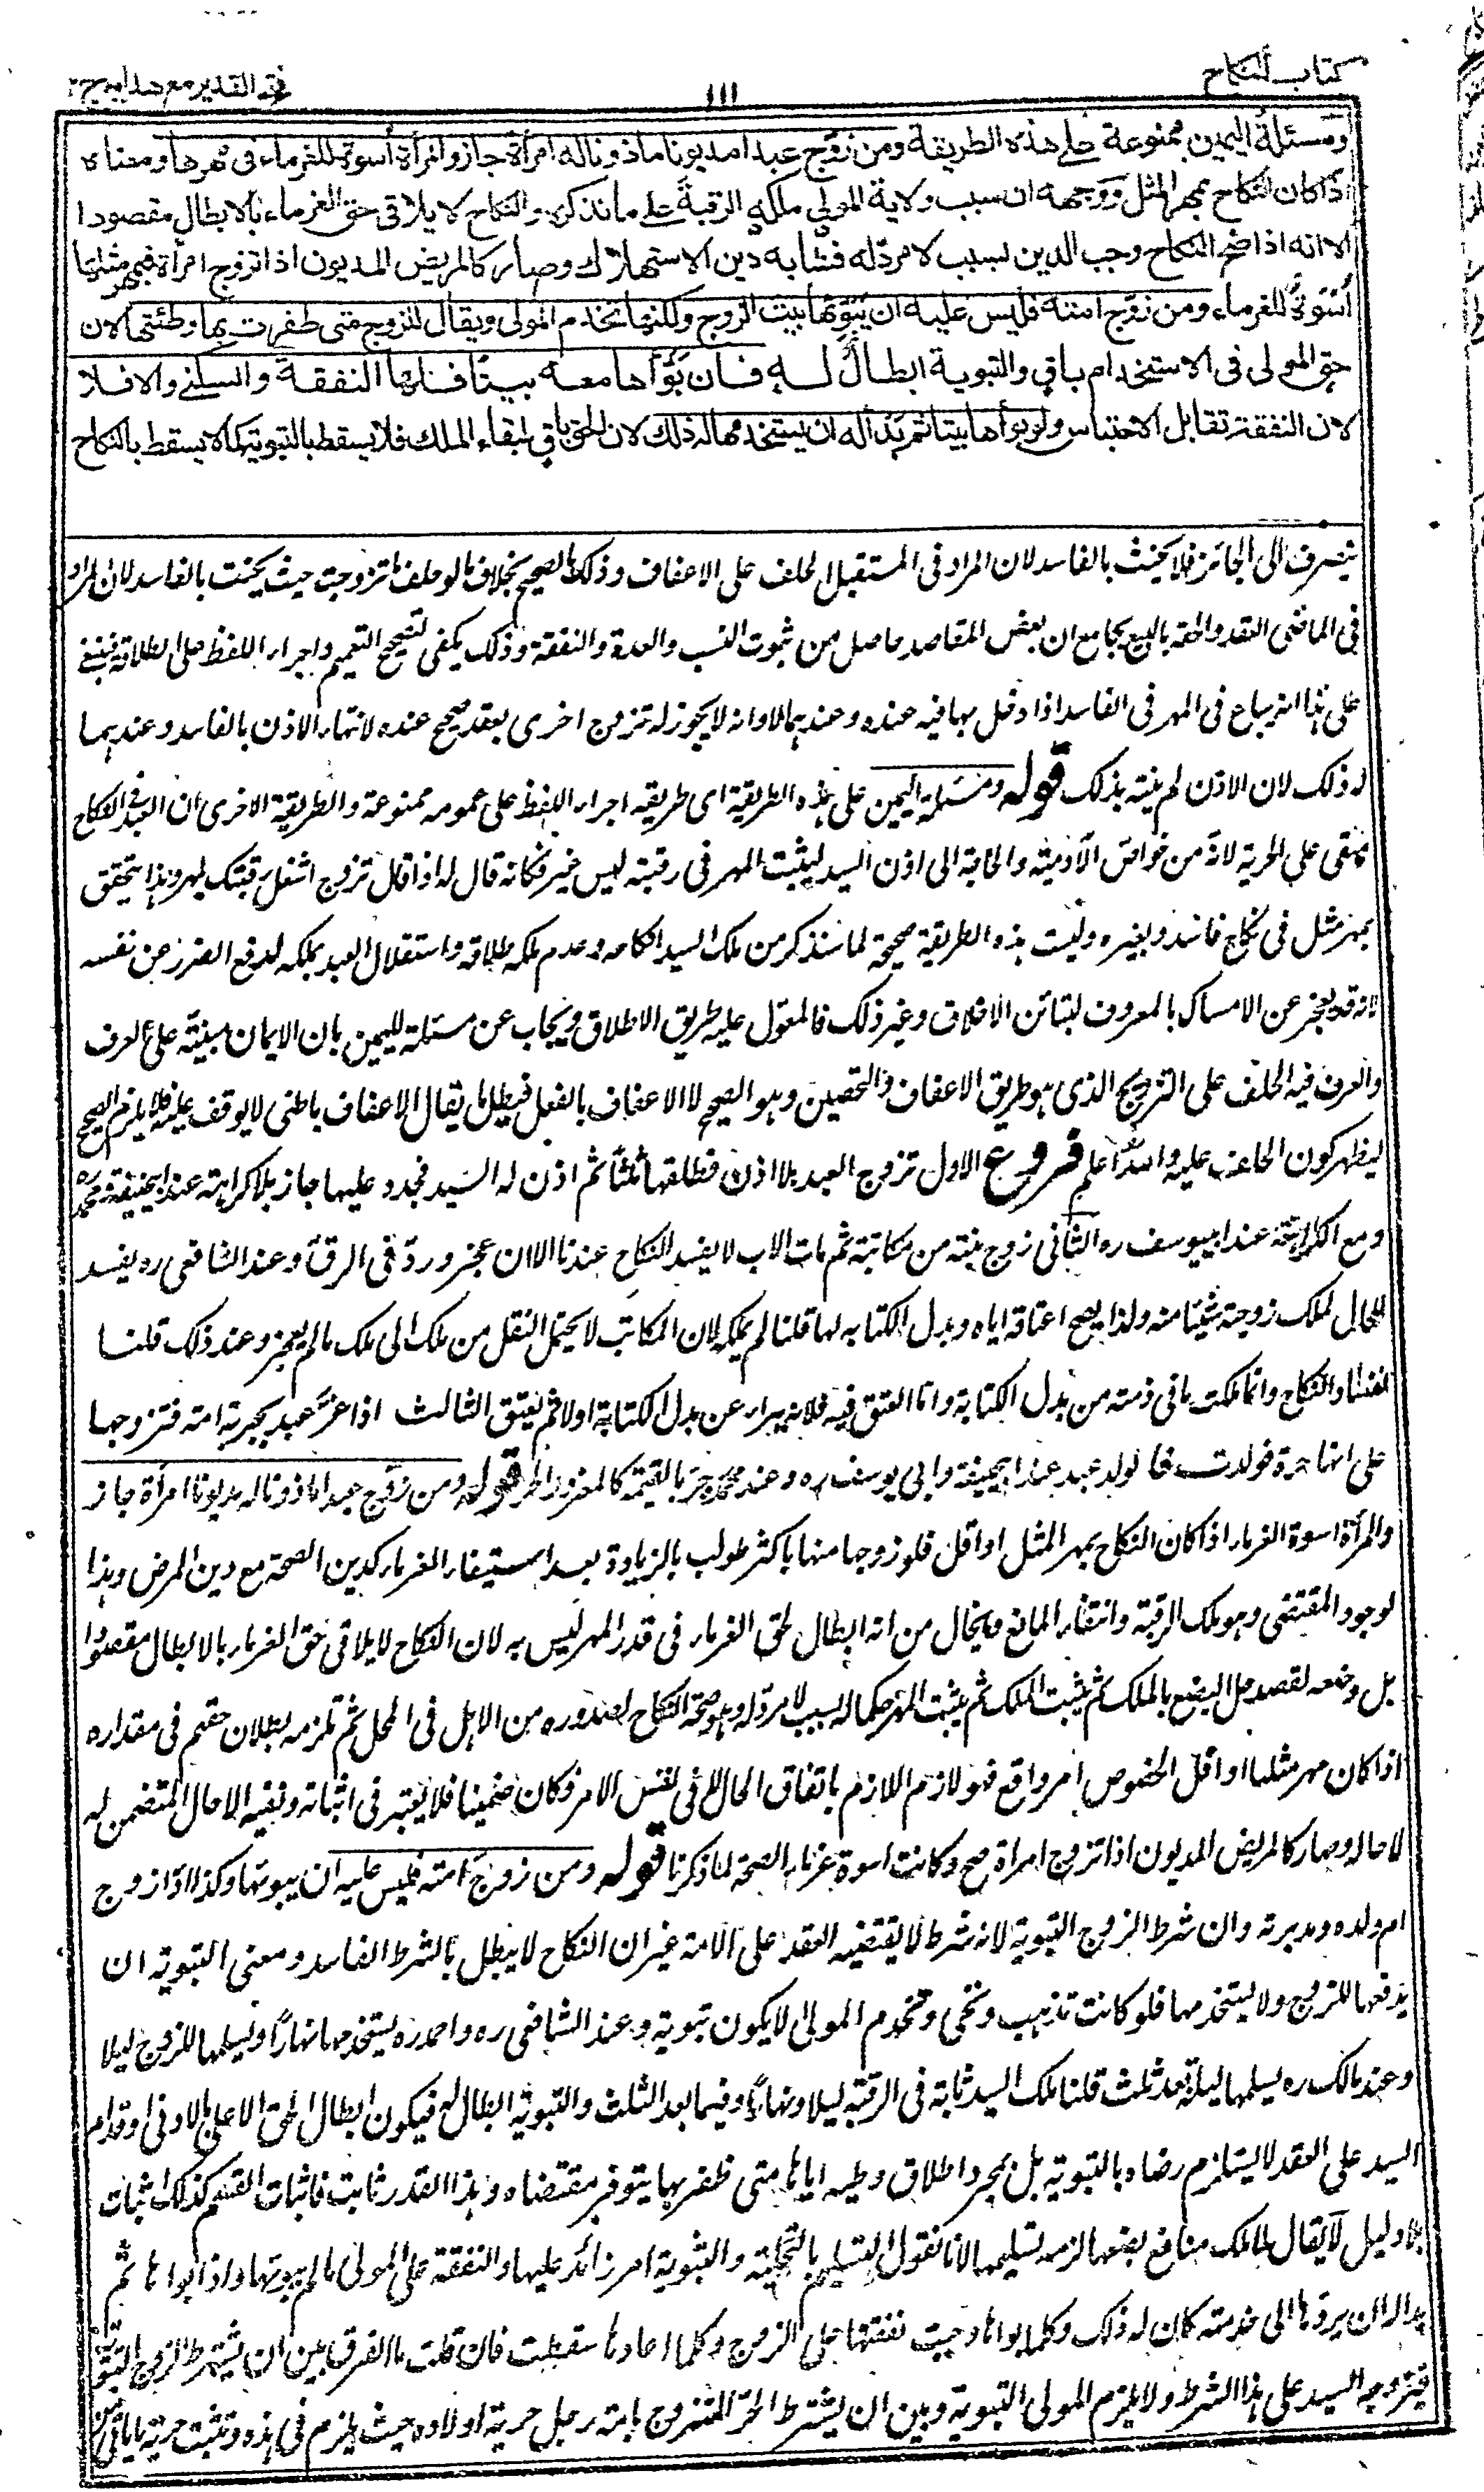 كتاب النكاح
١١١
فتح القدير مع هدايه ج٢
ومسئلة اليمين ممنوعة على هذه الطريقة ومن زوّج عبدا مديونا ماذونا له امرأة جاز والمرأة أسوة للغرماء فى مهرها ومعناه
اذا كان النكاح بمهر المثل ووجهه ان سبب ولاية المولى ملكه الرقبة على ما نذكره والنكاح لا يلاقى حق الغرماء بالابطال مقصودا
الا انه اذا صح النكاح وجب الدين بسبب لا مردّ له فشابه دين الاستهلاك وصار كالمريض المديون اذا تزوج امرأة فبمهر مثلها
أسوةٌ للغرماء ومن زوّج امته فليس عليه ان يبوّئها بيت الزوج ولكنها تخدم المولى ويقال للزوج متى ظفرت بها وطئتها لان
حق المولى فى الاستخدام باقٍ والتبوية ابطالٌ له فان بوّأها معه بيتًا فلها النفقة والسكنى والا فلا
لان النفقة تقابل الاحتباس ولو بوأها بيتا ثم بدا له ان يستخدمها له ذلك لان الحق باقٍ لبقاء الملك فلا يسقط بالتبوية كما لا يسقط بالنكاح
ينصرف الى الجائز فلا يحنث بالفاسد لان المراد فى المستقبل الحلف على الاعفاف وذلك بالصحيح بخلاف ما لو حلف ما تزوجت حيث يحنث بالفاسد لان المراد
فى الماضى العقد والحقه بالبيع بجامع ان بعض المقاصد حاصل من ثبوت النسب والعدة والنفقة وذلك يكفى لتصحيح التعميم واجراء اللفظ على اطلاقه فينبنى
على هذا انه يباع فى المهر فى الفاسد اذا دخل بها فيه عنده وعندهما لا وانه لا يجوز له تزوج اخرى بعقد صحيح عنده لانتهاء الاذن بالفاسد وعندهما
له ذلك لان الاذن لم ينته بذلك قوله ومسئلة اليمين على هذه الطريقة اى طريقه اجراء اللفظ على عمومه ممنوعة والطريقة الاخرى ان العبد فى النكاح
مبقى على الحرية لانه من خواص الآدمية والحاجة الى اذن السيد ليثبت المهر فى رقبته ليس غير فكانه قال له اذا قال تزوج اشغل رقبتك بمهر وهذا يتحقق
بمهر مثل فى نكاح فاسد وبغيره وليست هذه الطريقة صحيحة لما سنذكر من ملك السيد انكاحه وعدم ملكه طلاقه واستقلال العبد بملكه لدفع الضرر عن نفسه
لانه قد يعجز عن الامساك بالمعروف لتبائن الاخلاق وغير ذلك فالمعول عليه طريق الاطلاق ويجاب عن مسئلة اليمين بان الايمان مبنية على العرف
والعرف فيه الحلف على التزوج الذى هو طريق الاعفاف والتحصين وهو الصحيح لا الاعفاف بالفعل فبطل ما يقال الاعفاف باطنى لا يوقف عليه فلا يلزم الصحيح
ليظهر كون الحلف عليه والله اعلم فروع الاول تزوج العبد بلا اذن فطلقها ثلثا ثم اذن له السيد فجدد عليها جاز بلا كراهة عند ابيحنيفة ومحمد ره
ومع الكراهة عند ابيوسف ره الثانى زوج بنته من مكاتبه ثم مات الاب لا يفسد النكاح عندنا الا ان عجز ورد فى الرق وعند الشافعى ره يفسد
للحال لملك زوجته شيئا منه ولذا يصح اعتاقه اياه وبدل الكتابه لها قلنا لم يملكه لان المكاتب لا يحتمل النقل من ملك الى ملك ما لم يعجز وعند ذلك قلنا
بفساد النكاح وانما ملكت ما فى ذمته من بدل الكتابة واما العتق فيه فلانه يبراء عن بدل الكتابة اولا ثم يعتق الثالث اذا غرّ عبد بحرية امة فتزوجها
على انها حرة فولدت فالولد عبد عند ابيحنيفة وابى يوسف ره وعند محمد حر بالقيمة كالمغرور الحر قوله ومن زوّج عبدا ماذونا له مديونا امرأة جاز
والمرأة اسوة الغرماء اذا كان النكاح بمهر المثل او اقل فلو زوجها منها باكثر طولب بالزيادة بعد استيفاء الغرماء كدين الصحة مع دين المرض وهذا
لوجود المقتضى وهو ملك الرقبة وانتفاء المانع وما يخال من انه ابطال لحق الغرماء فى قدر المهر ليس به لان النكاح لا يلاقى حق الغرماء بالابطال مقصودا
بل وضعه لقصد حل البضع بالملك ثم يثبت الملك ثم يثبت المهر حكما له بسبب لا مرد له وهو صحة النكاح لصدوره من الاهل فى المحل ثم تلزمه بطلان حقهم فى مقداره
اذا كان مهر مثلها او اقل الخصوص امر واقع فهو لازم اللازم باتفاق الحال فى نفس الامر وكان ضمينا فلا يعتبر فى اثباته ونفيه الا حال المتضمن له
لا حاله وصار كالمريض المديون اذا تزوج امراة صح وكانت اسوة غرماء الصحة لما ذكرنا قوله ومن زوج امته فليس عليه ان يبوئها وكذا اذا زوج
ام ولده ومدبرته وان شرط الزوج التبوية لانه شرط لا يقتضيه العقد على الامة غير ان النكاح لا يبطل بالشرط الفاسد ومعنى التبوية ان
يدفعها للزوج ولا يستخدمها فلو كانت تذهب وتجئ وتخدم المولى لا يكون تبوية وعند الشافعى ره واحمد ره يستخدمها نهارًا ويسلمها للزوج ليلا
وعند مالك ره يسلمها ليلة بعد ثلث قلنا ملك السيد ثابت فى الرقبة ليلا ونهارًا وفيما بعد الثلث والتبوية ابطال له فيكون ابطال الحق الاعلى بالادنى واقدام
السيد على العقد لا يستلزم رضاه بالتبوية بل بمجرد اطلاق وطيه اياها متى ظفر بها يتوفر مقتضاه وهذا القدر ثابت فاثبات القسم كذلك اثبات
بلا دليل لا يقال لما ملك منافع بضعها لزمه تسليمها لانا نقول التسليم بالتخلية والتبوية امر زائد عليها والنفقة على المولى ما لم يبوئها واذا بواها ثم
بدا له ان يردها الى خدمته كان له ذلك وكلما بواها وجبت نفقتها على الزوج وكلما اعادها سقطت فان قلت ما الفرق بين ان يشترط الزوج التبوية
فيتزوجه السيد على هذا الشرط ولا يلزم المولى التبوية وبين ان يشترط الحر المتزوج بامة رجل حرية اولاده حيث يلزم فى هذه وتثبت حرية ما ياتى من